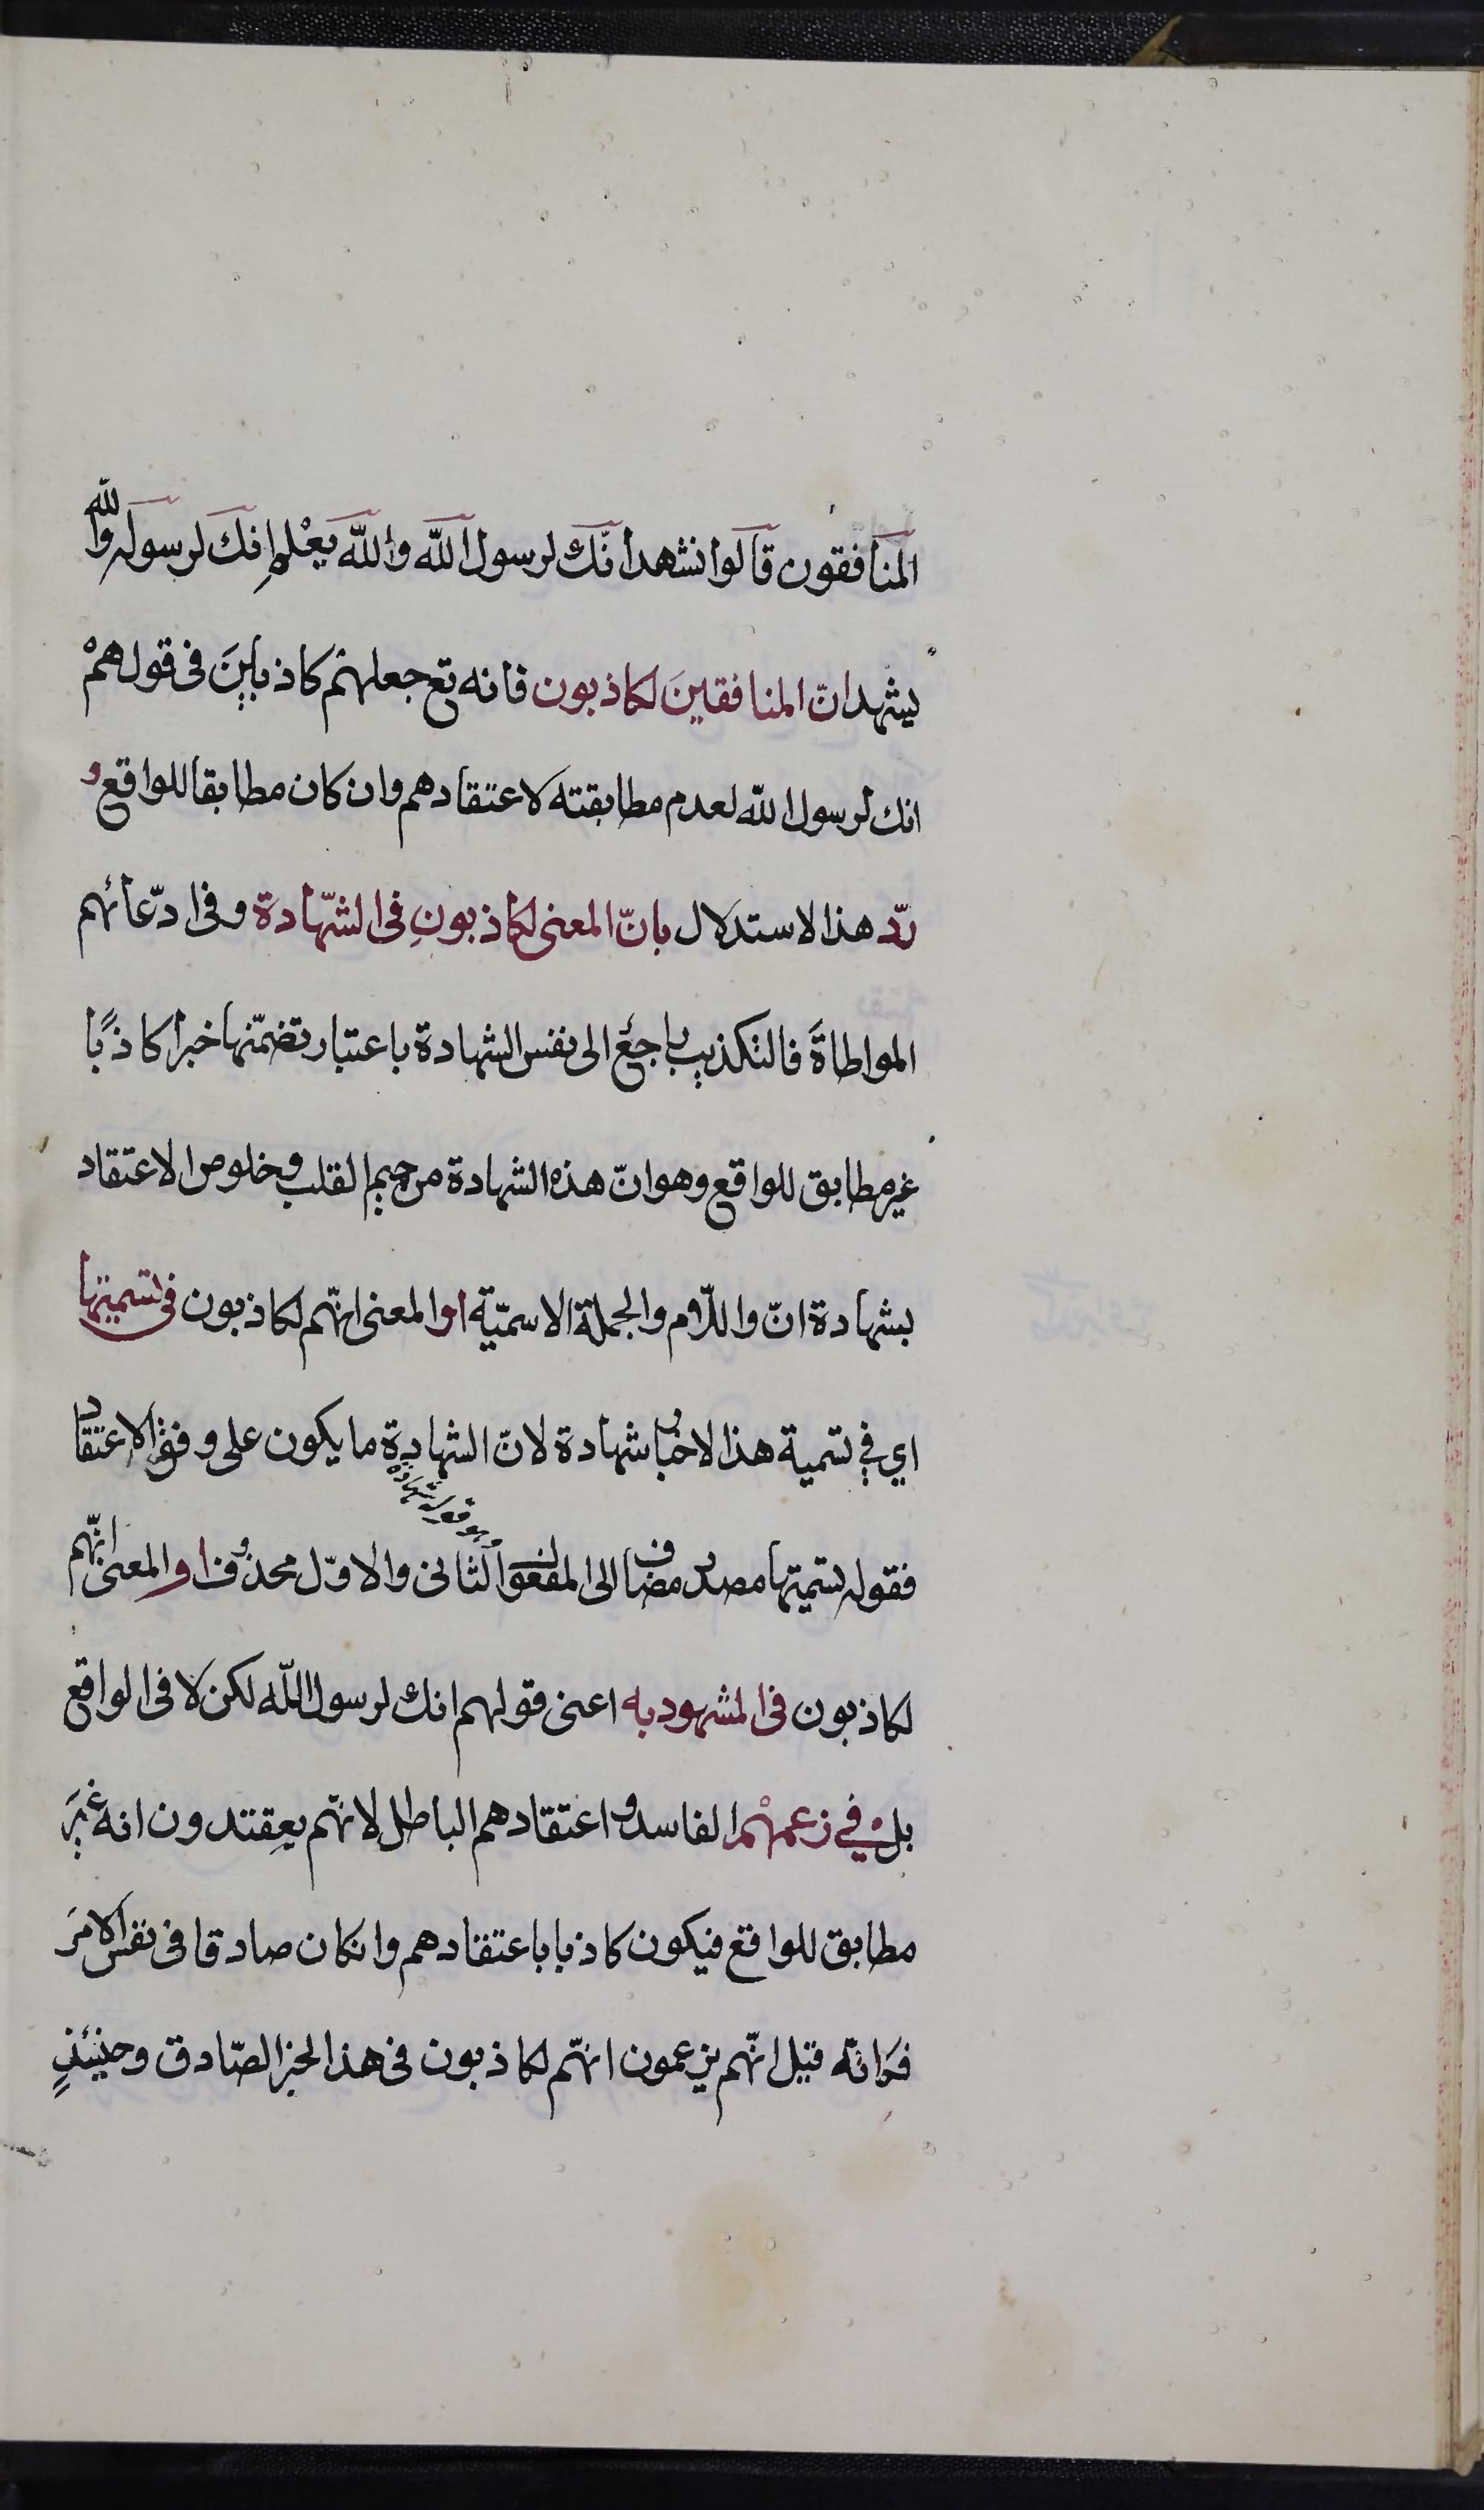 المنافقون قالوا نشهد انّك لرسول اللّه واللّه يعْلم انك لرسوله واللّه
يشهد انّ المنافقينَ لكاذبون فانه تع جعلهمْ كاذبينَ فى قولهمْ
انك لرسول اللّه لعدم مطابقته لاعتقادهم وان كان مطابقا للواقع و
ردّ هذا الاستدلال بانّ المعنى لكاذبونِ فى الشّهادة وفى ادّعائهم
المواطاةَ فالتكذيب راجع الى نفس الشهادة باعتبار تضمّنها خبرا كاذبًا
غير مطابق للواقع وهو انّ هذه الشهادة من صميم القلب وخلوص الاعتقاد
بشهادة انّ واللّام والجملة الاسميّة او المعنى انّهم لكاذبون فى تسميتها
اي في تسمية هذا الاخبار شهادة لانّ الشهادة ما يكون على وفق الاعتقاد
وهو قوله شهادة
فقوله تسميتها مصدر مضاف الى المفعول الثانى والاوّل محذوف او المعنى انّهم
لكاذبون فى المشهود به اعنى قولهم انك لرسول اللّه لكن لا فى الواقع
بلْ في زعمهمْ الفاسد واعتقادهم الباطل لانهم يعقتدون انه غيرَ
مطابق للواقع فيكون كاذبا باعتقادهم وانكان صادقا فى نفس الامر
فكانّه قيل انّهم يزعمون انهّم لكاذبون فى هذا الخبر الصّادق وحينئذٍ